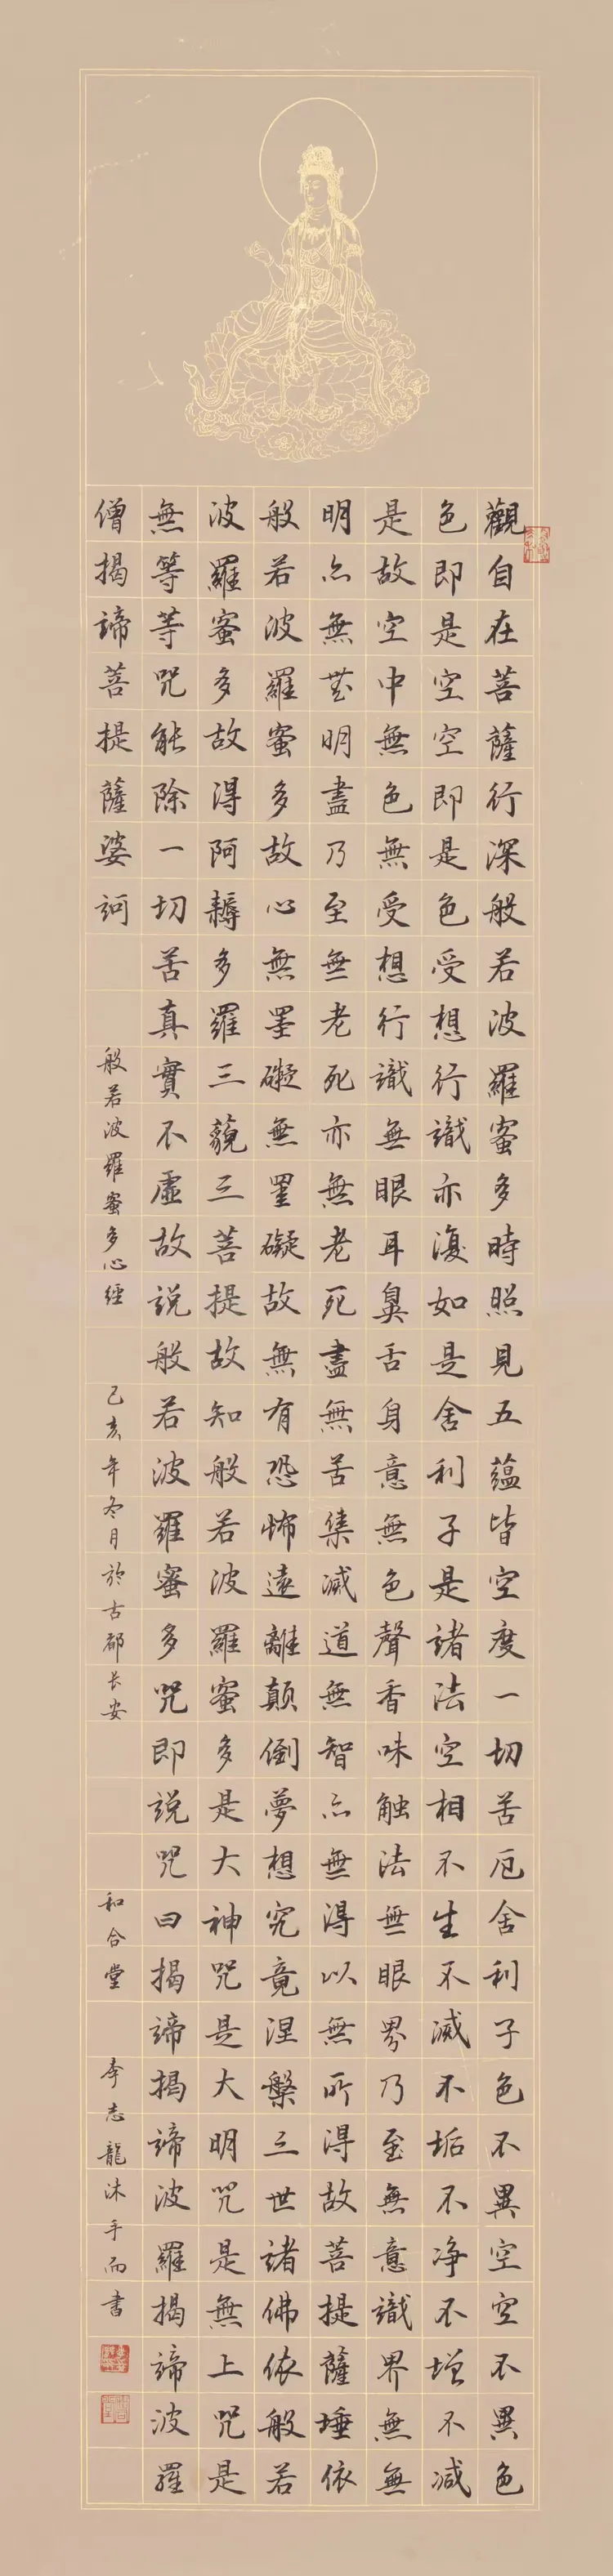 觀自在菩薩行深般若波羅蜜多時照見五蘊皆空度一切苦厄舍利子色不異空空不異色
色即是空空即是色受想行識亦復如是舍利子是諸法空相不生不滅不垢不净不增不减
是故空中無色無受想行識無眼耳鼻舌身意無色聲香味触法無眼界乃至無意識界無無
明亦無無明盡乃至無老死亦無老死盡無苦集滅道無智亦無得以無所得故菩提薩埵依
般若波羅蜜多故心無罣礙無罣礙故無有恐怖遠離顛倒夢想究竟涅槃三世諸佛依般若
波羅蜜多故得阿耨多羅三藐三菩提故知般若波羅蜜多是大神咒是大明咒是無上咒是
無等等咒能除一切苦真實不虛故説般若波羅蜜多咒即説咒曰揭諦揭諦波羅揭諦波羅
僧揭諦菩提薩婆訶
般若波羅蜜多心經
己亥年冬月於古都长安
和合堂
李志龍沐手而書